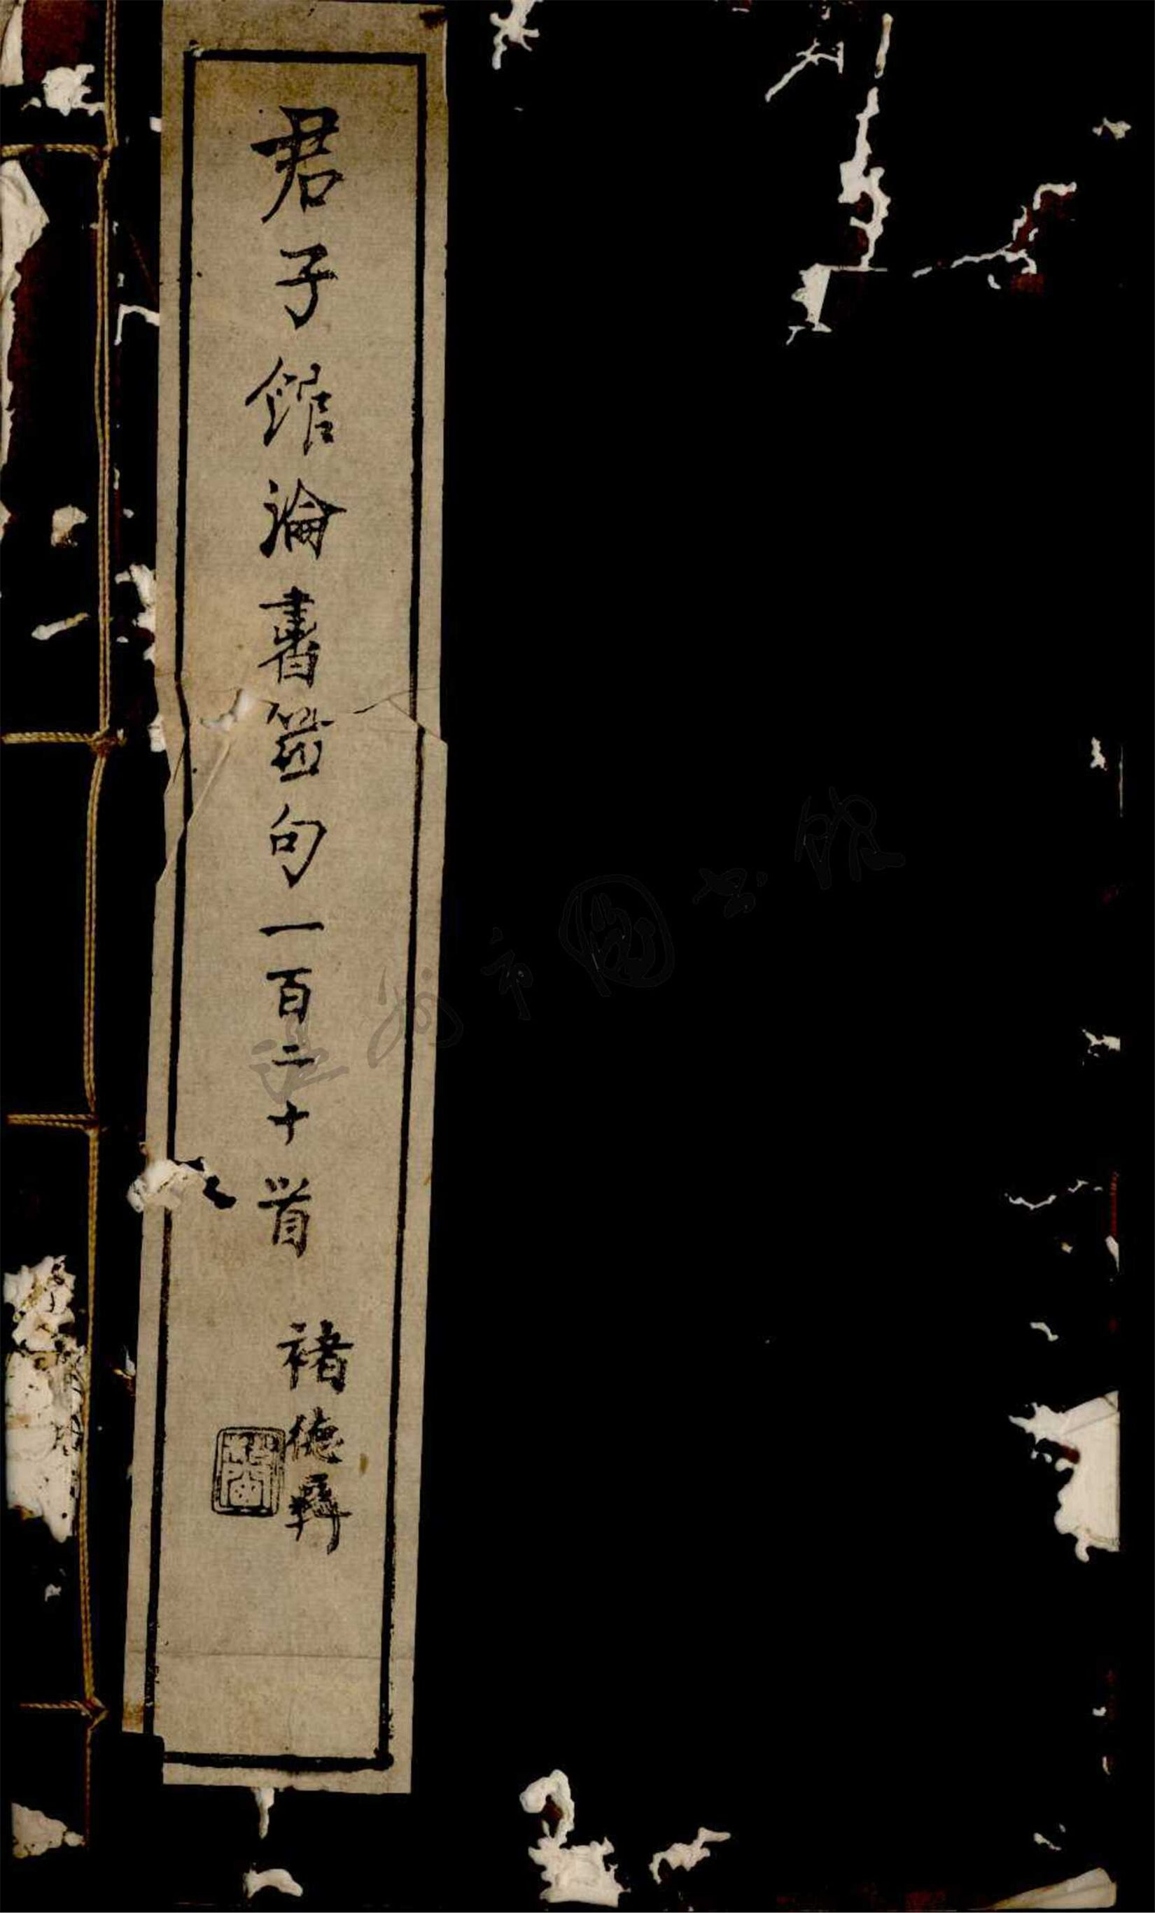 君子館論書絕句一百二十首
褚德彝
温州市圖书館